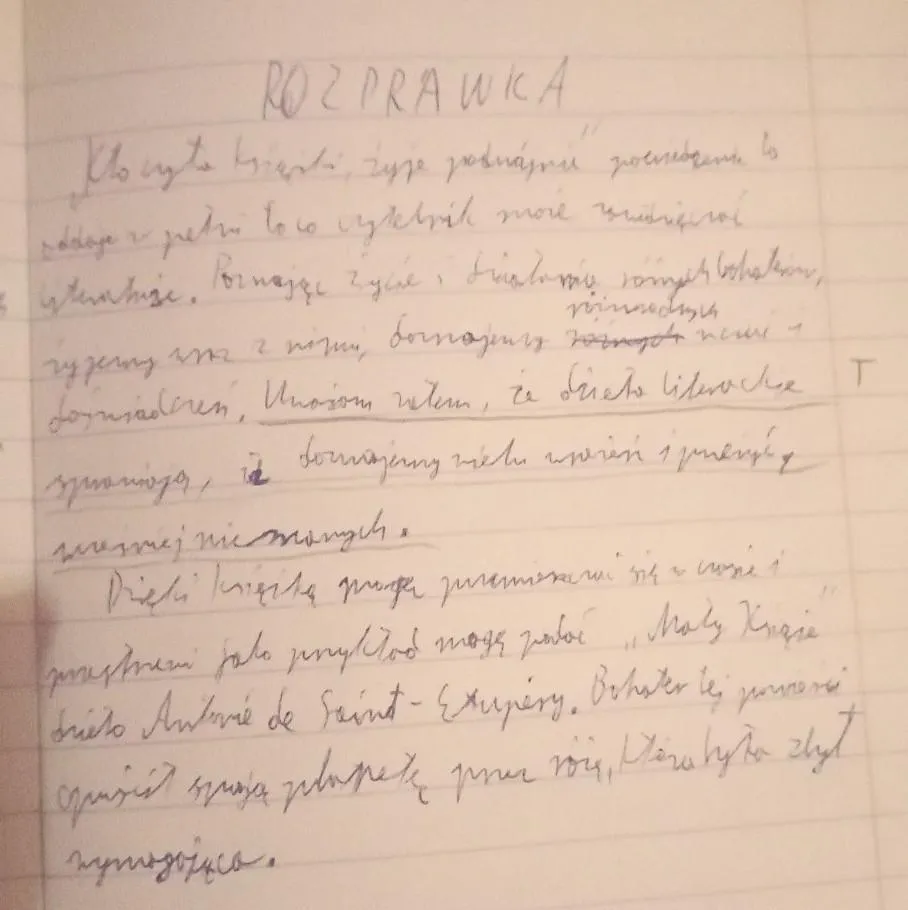 ROZPRAWKA
„Kto czyta książki, żyje podwójnie" powiedzenie to
oddaje w pełni to co czytelnik może zawdzięczać
literaturze. Poznając życie i działania różnych bohaterów,
różnorodnych
żyjemy wraz z nimi, doznajemy różnych uczuć i
doświadczeń. Uważam zatem, że dzieła literackie T
sprawiają, iż doznajemy wielu wrażeń i przeżyć
wcześniej nie znanych.
Dzięki książką mogę przemieszczać się w czasie i
przestrzeni jako przykład mogę podać „Mały Książe"
dzieło Antonie de Saint-Exupéry. Bohater tej powieści
opuścił swoją planetę przez różę, która była zbyt
wymagająca.